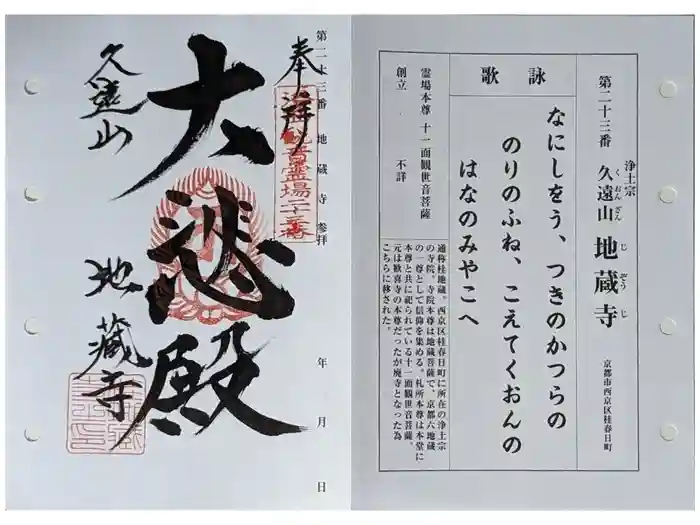 第二十三番 地蔵寺 参拝 年 月 日
奉拝
観音霊場二十三番
大悲殿
久遠山
地蔵寺
浄土宗
第二十三番 久遠山 地蔵寺
くおんざん じぞうじ
京都市西京区桂春日町
詠歌
なにしをう、つきのかつらの
のりのふね、こえてくおんの
はなのみやこへ
霊場本尊 十一面観世音菩薩
創立 不詳
通称桂地蔵。西京区桂春日町に所在の浄土宗
の寺院。寺院本尊は地蔵菩薩で、京都六地蔵
の一尊として信仰を集める。札所本尊は本堂に
本尊と共に祀られている十一面観世音菩薩。
元は歓喜寺の本尊だったが廃寺となった為
こちらに移された。